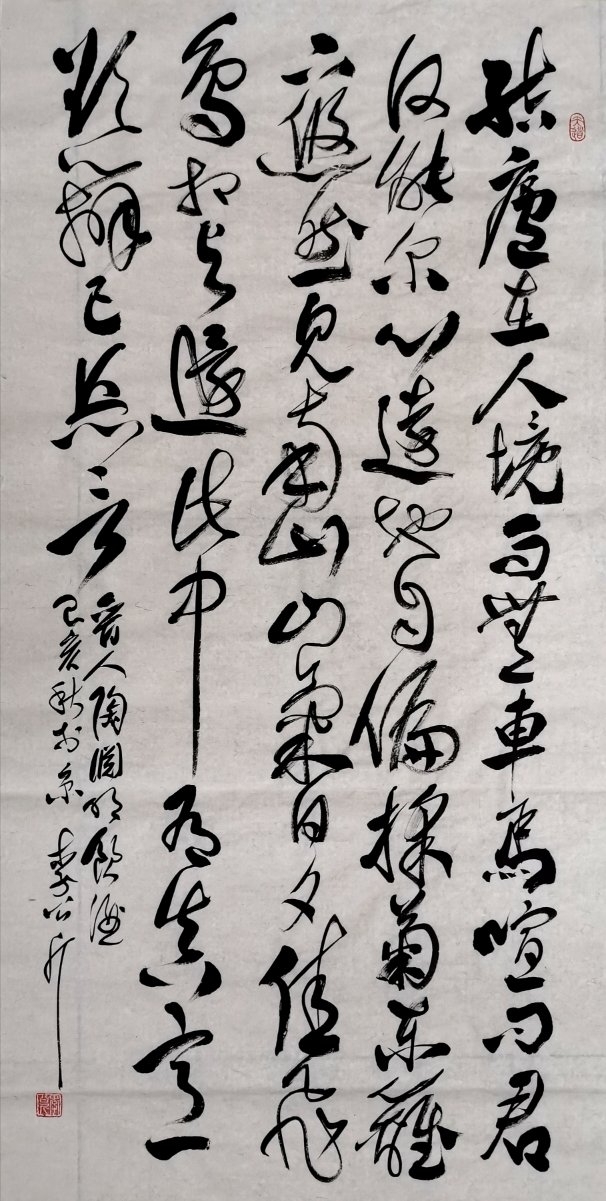 結廬在人境而無車馬喧問君
何能尔心遠地自偏採菊東籬
下悠然見南山山氣日夕佳飛
鳥相與還此中有真意
欲辨已忘言
晋人陶淵明飲酒
己亥秋於京 李